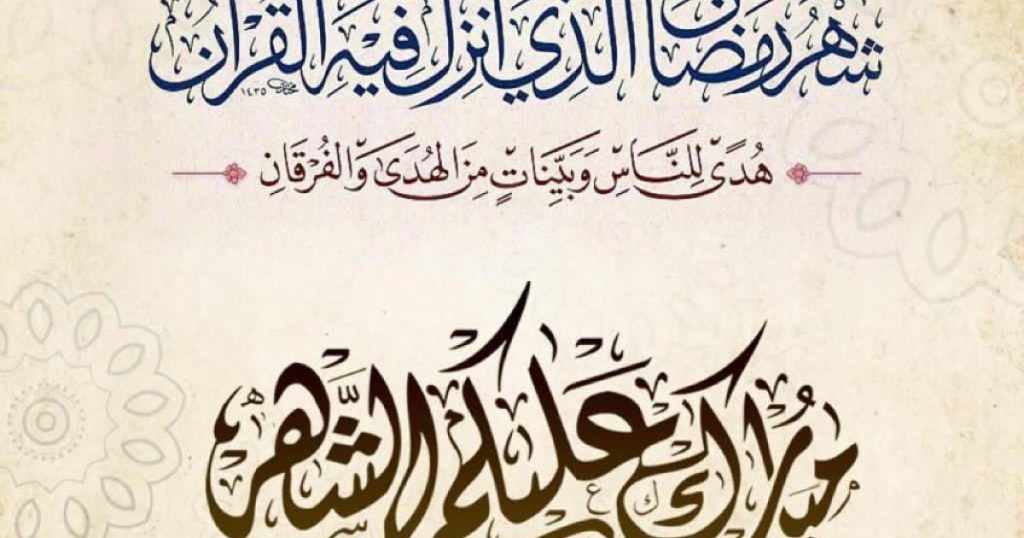 شهر رمضان الذي أنزل فيه القرآن
١٤٣٥
هُدًى لِلنَّاسِ وَبَيِّنَاتٍ مِنَ الهُدَى وَالفُرْقَانِ
مُبارك عَليكم الشَّهر